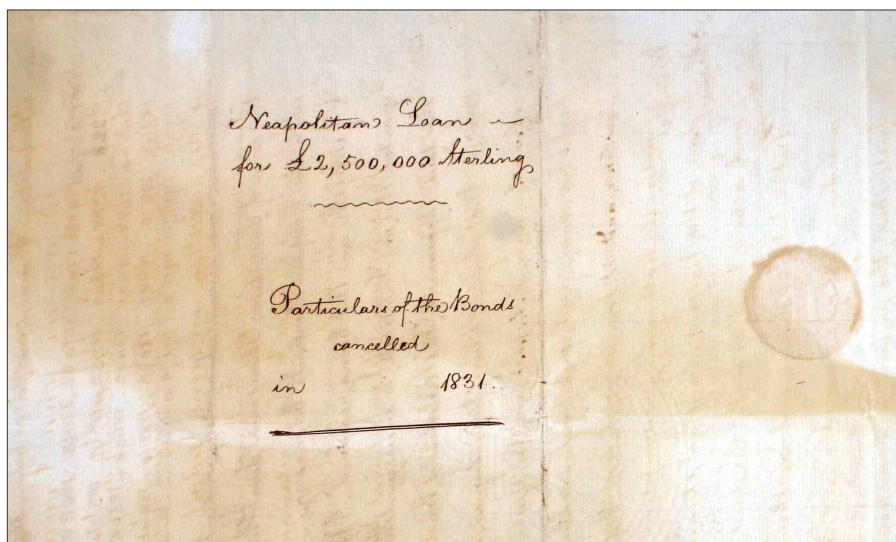 Neapolitan Loan
for £2,500,000 Sterling
Particulars of the Bonds
cancelled
in 1831.